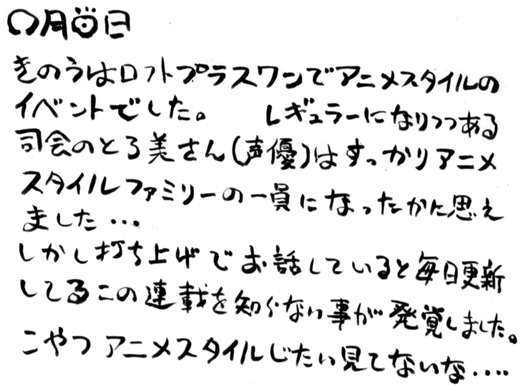 〇月〇日
きのうはロフトプラスワンでアニメスタイルの
イベントでした。 レギュラーになりつつある
司会のとろ美さん(声優)はすっかりアニメ
スタイルファミリーの一員になったかに思え
ました…
しかし打ち上げでお話していると毎日更新
してるこの連載を知らない事が発覚しました。
こやつアニメスタイルじたい見てないな‥‥